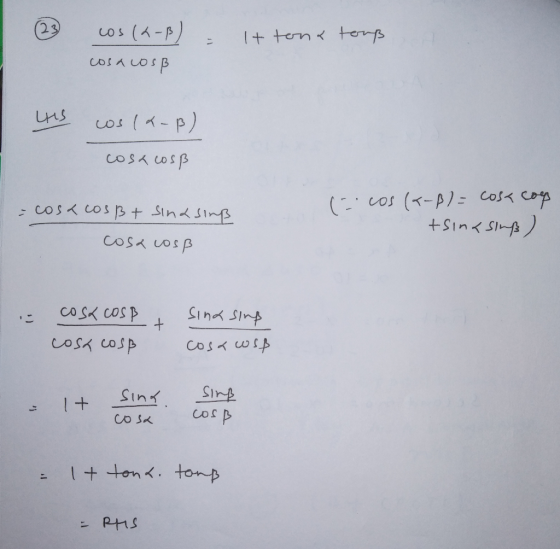 (23) cos (α-β) / cosα cosβ = 1 + tanα tanβ
LHS cos (α-β) / cosα cosβ
= cosα cosβ + sinα sinβ / cosα cosβ (∵ cos (α-β) = cosα cosβ
+ sinα sinβ)
∴ = cosα cosβ / cosα cosβ + sinα sinβ / cosα cosβ
= 1 + sinα / cosα . sinβ / cosβ
= 1 + tanα . tanβ
= RHS